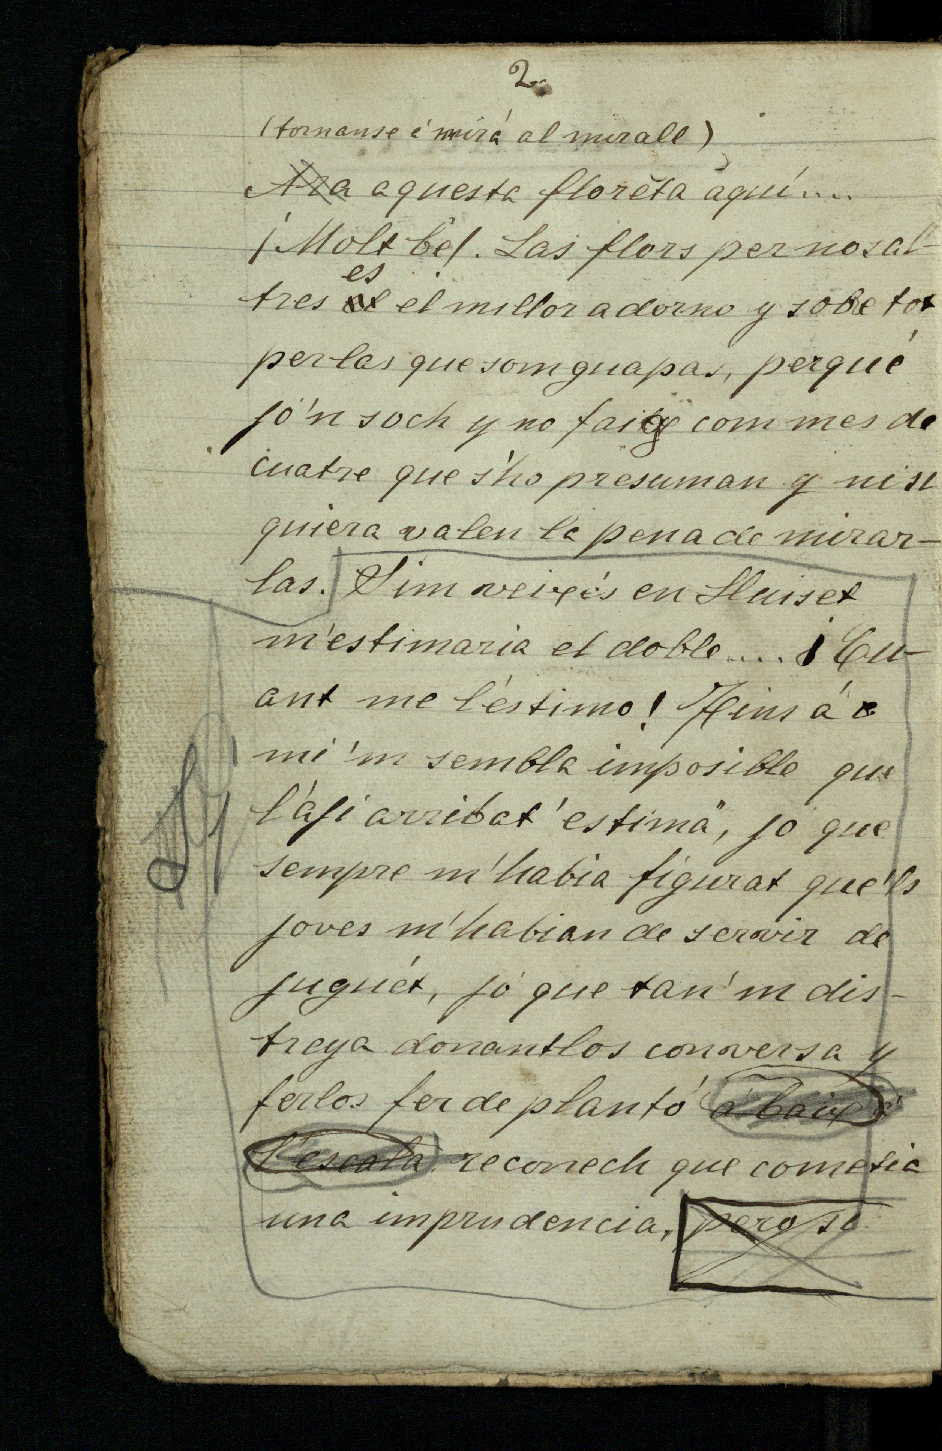 2
(tornanse á mirá al mirall)
Ara aquesta floreta aquí....
¡Molt bé!. Las flors per nosal-
tres es el millor adorno y sobe tot
per las que som guapas, perqué
jó'n soch y no faig com mes de
cuatre que s'ho presuman y ni si
quiera valen la pena de mirar-
las. Si'm veiyés en Lluiset
m'estimaria el doble.... ¡Cu-
ant me l'éstimo! Fins á
mi 'm sembla imposible que
l'aji arribat 'estimá, jo que
sempre m'habia figurat que'ls
joves m'habian de servir de
juguét, jó que tan'm dis-
treya donantlos conversa y
ferlos fer de plantó á baix á
l'escala reconech que cometia
una imprudencia, pero si